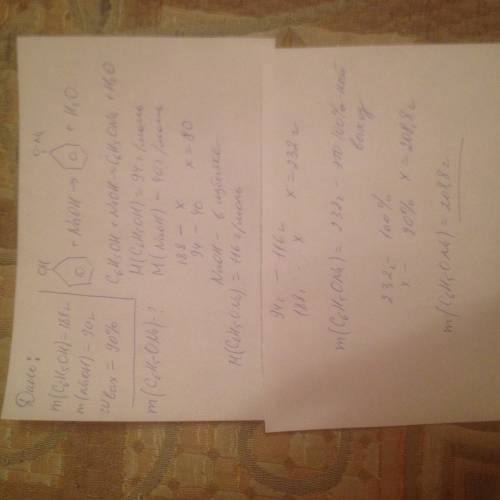 Дано:
m(C6H5OH)=188г
m(NaOH)=90г
вых = 90%
m(C6H5ONa)-?
OH
+ NaOH → + H2O
C6H5OH + NaOH → C6H5ONa + H2O
M(C6H5OH)=94 г/моль
M(NaOH)=40 г/моль
188 - x
94 - 40 x=80
NaOH - в избытке
M(C6H5ONa)=116 г/моль
94г - 116г
188г - x x=232г
m(C6H5ONa)=232г - 100% ный
выход
232г - 100%
x - 90% x=208,8г
m(C6H5ONa)=208,8г